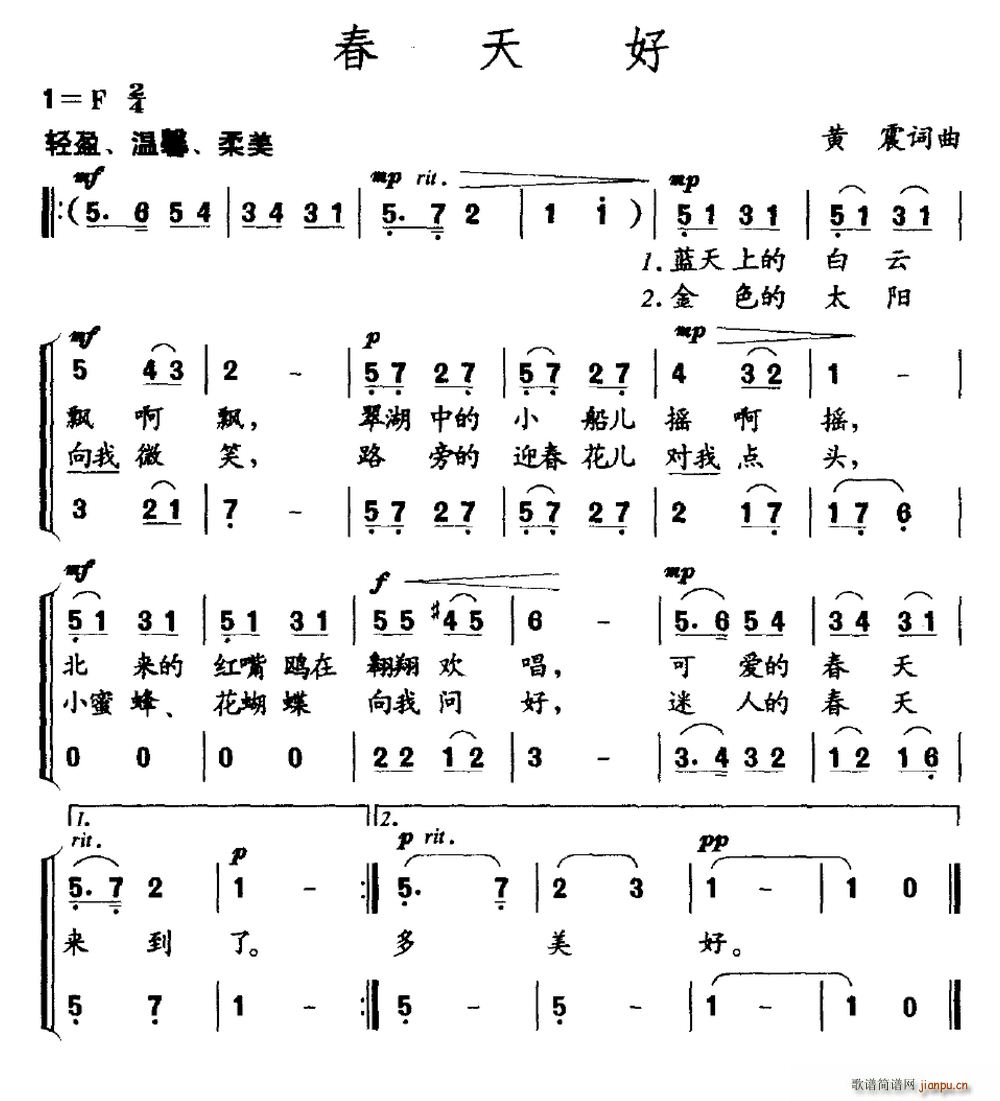 春 天 好
1=F 2/4
轻盈、温馨、柔美
黄 震词曲
mf mp rit. mp
( 5. 6 5 4 | 3 4 3 1 | 5. 7 2 | 1 i ) | 5 1 3 1 | 5 1 3 1 |
1.蓝天上的 白 云
2.金 色的 太 阳
mf p mp
5 4 3 | 2 - | 5 7 2 7 | 5 7 2 7 | 4 3 2 | 1 - |
飘 啊 飘, 翠湖中的 小 船儿 摇 啊 摇,
向我 微 笑, 路 旁的 迎春花儿 对我 点 头,
3 2 1 | 7 - | 5 7 2 7 | 5 7 2 7 | 2 1 7 | 1 7 6 |
mf f mp
5 1 3 1 | 5 1 3 1 | 5 5 #4 5 | 6 - | 5. 6 5 4 | 3 4 3 1 |
北 来的 红嘴 鸥在 翱翔 欢 唱, 可 爱的 春 天
小蜜 蜂、 花蝴 蝶 向我 问 好, 迷 人的 春 天
0 0 | 0 0 | 2 2 1 2 | 3 - | 3. 4 3 2 | 1 2 1 6 |
1. 2.
rit. p p rit. pp
5. 7 2 | 1 - :| 5. 7 | 2 3 | 1 - | 1 0 |
来 到 了。 多 美 好。
5 7 | 1 - :| 5 - | 5 - | 1 - | 1 0 |
歌谱简谱网 jianpu.cn